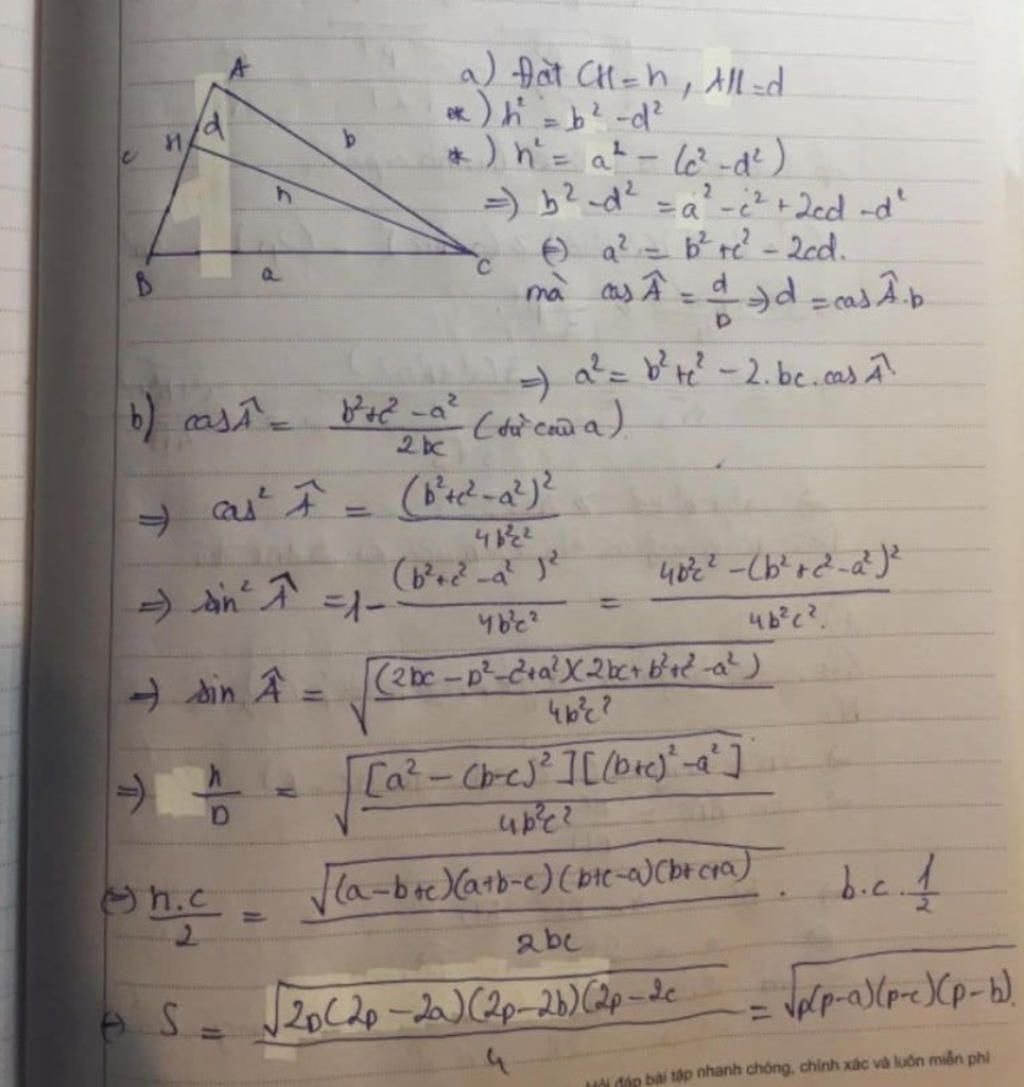 A
H
d
c
b
h
B
a
C
a) Đặt CH = h, AH = d
*) h² = b² - d²
*) h² = a² - (c² - d²)
=> b² - d² = a² - c² + 2cd - d²
(=) a² = b² + c² - 2cd.
mà cos Â = d/b => d = cos Â.b
=> a² = b² + c² - 2.bc.cos Â
b) cos Â = (b² + c² - a²)/2bc (từ câu a)
=> cos² Â = (b² + c² - a²)²/4b²c²
=> sin² Â = 1 - (b² + c² - a²)²/4b²c² = (4b²c² - (b² + c² - a²)²)/4b²c².
=> sin Â = √((2bc - b² - c² + a²)(2bc + b² + c² - a²)/4b²c²)
=> h/b = √([a² - (b-c)²][(b+c)² - a²]/4b²c²)
(=) h.c/2 = √((a-b+c)(a+b-c)(b+c-a)(b+c+a))/2bc . b.c.1/2
(=) S = √(2p(2p-2a)(2p-2b)(2p-2c)/4 = √p(p-a)(p-c)(p-b).
Hỏi đáp bài tập nhanh chóng, chính xác và luôn miễn phí